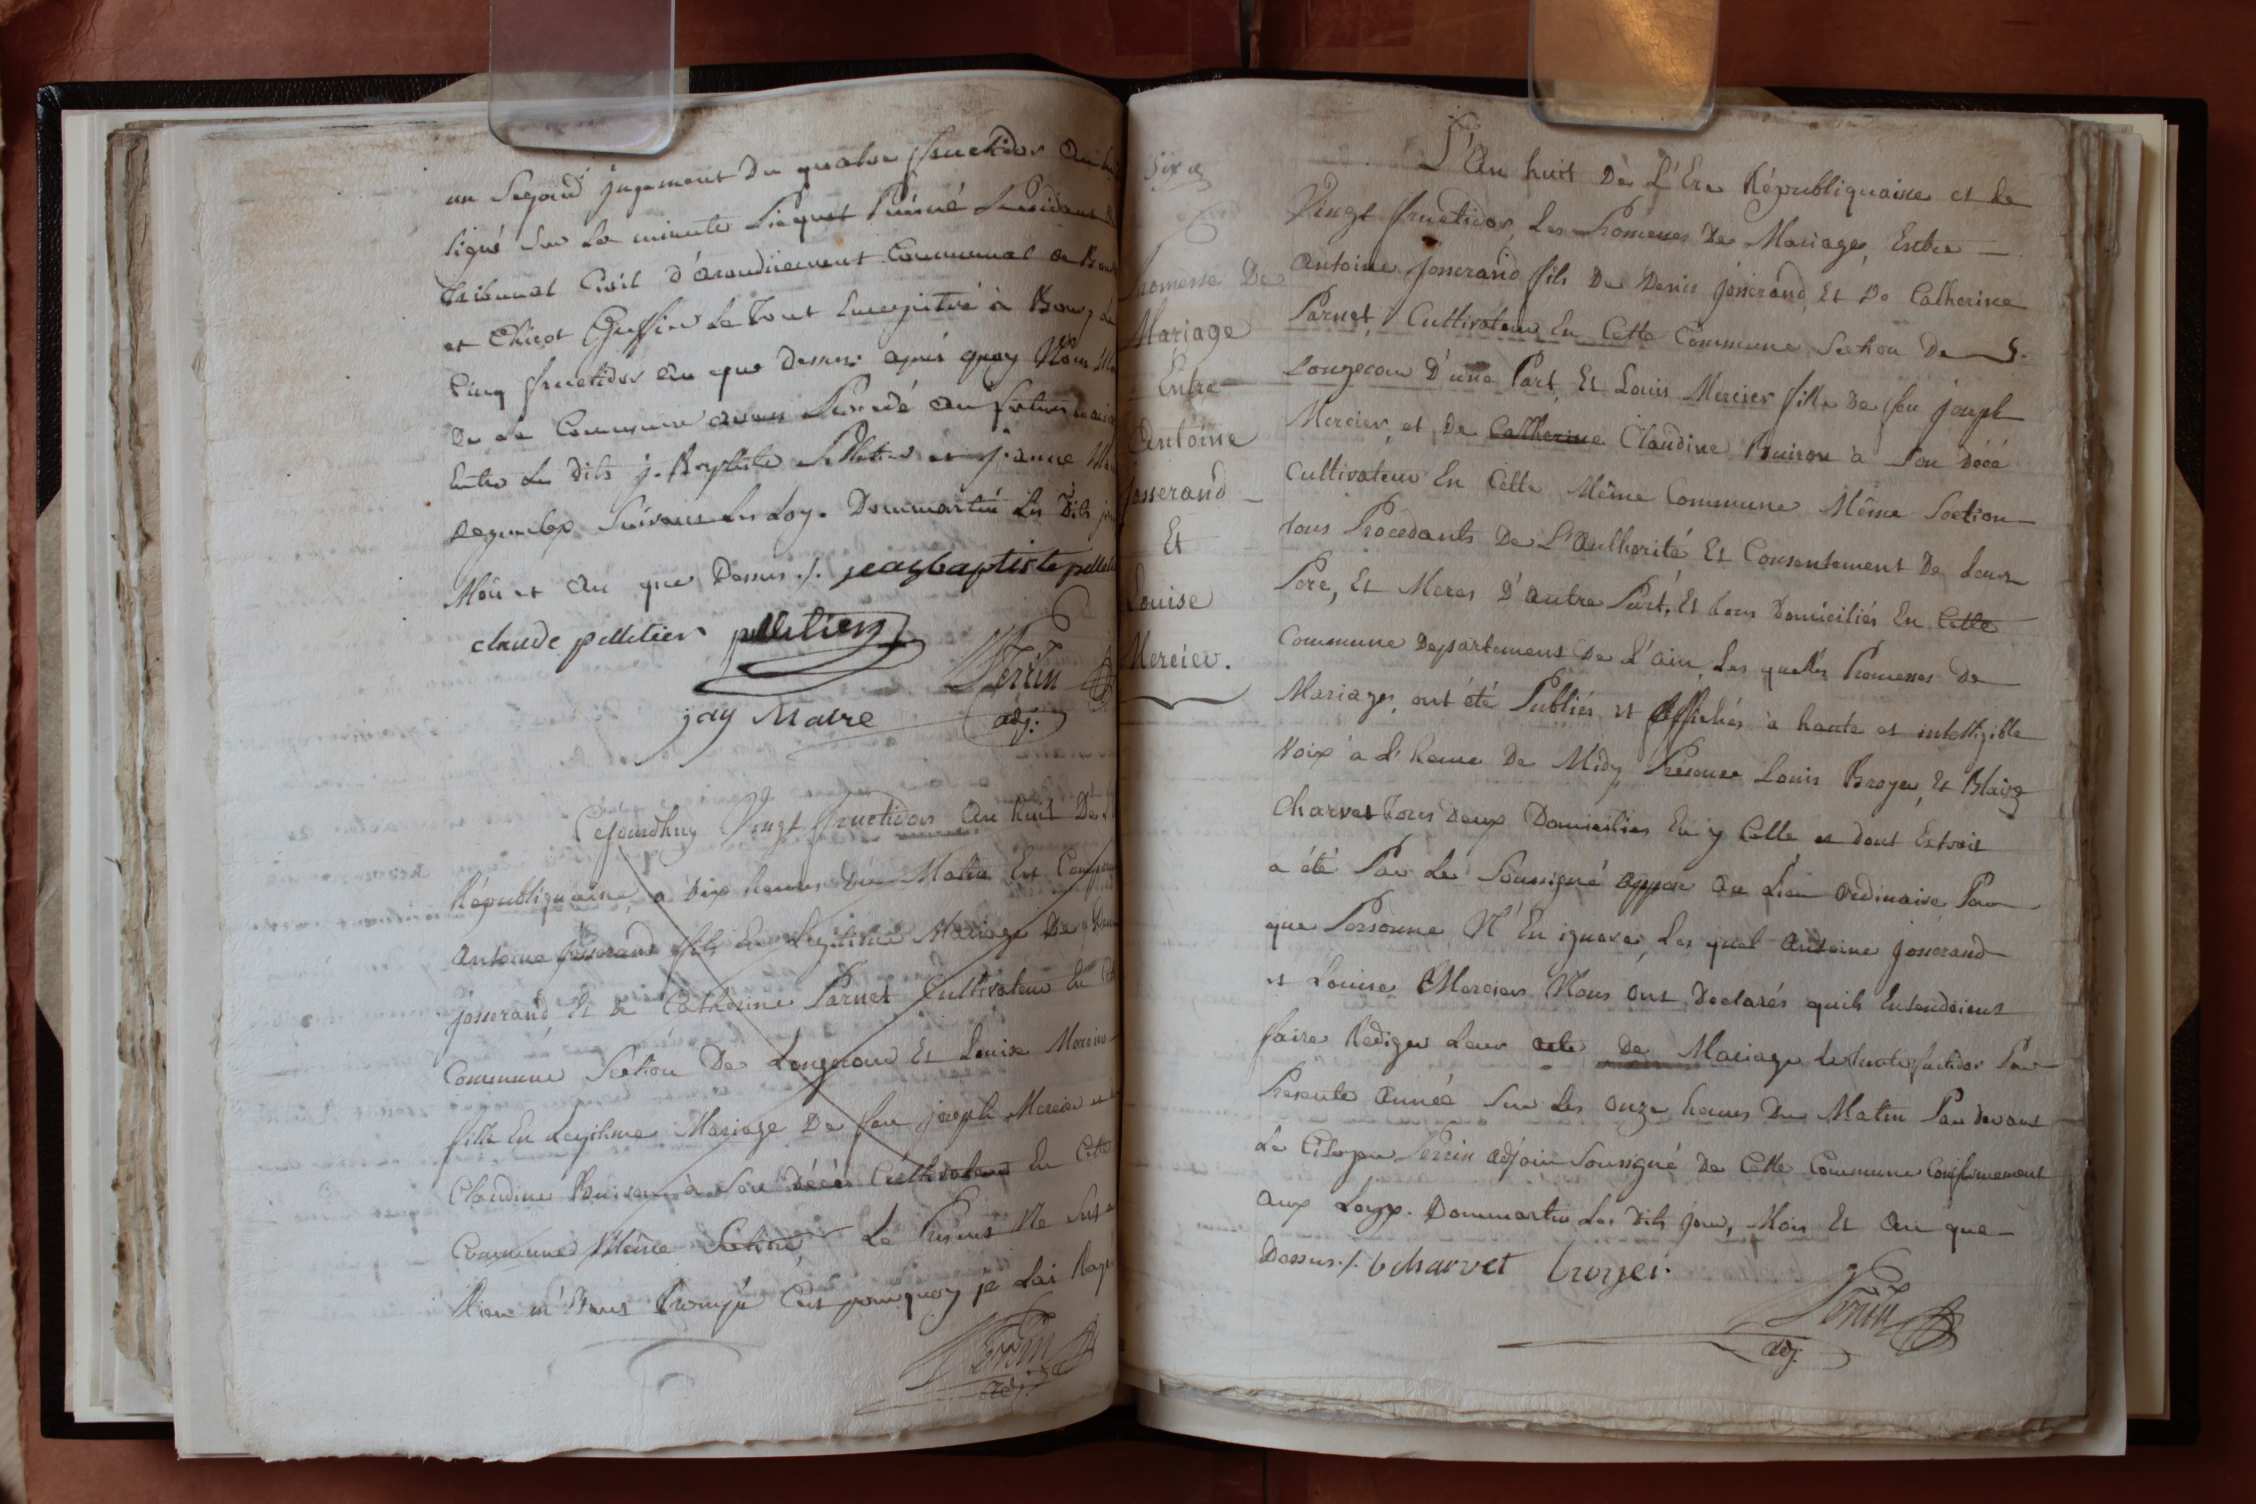 un Segond jugement du quatre fructidor an
signé Sur la minute Piquet Puisné Président
tribunal Civil d'arondissement Communal
et Chicot Greffier le tout Enregistré à Bourg
Cinq fructidor an que dessus. après quoy Nous
De la Commune avons Procédé au
Entre les dits j. Baptiste Pelletier et jeanne
Suivant les Loy. Dommartin les dits
Mois et an que Dessus ./. jeanbaptiste
claude pelletier pelletier
Perrin
adj.
jay Maire
Cejourdhuy Vingt fructidor an huit De
Républiquaine, a dix heures du Matin Est
Antoine josserand fils En Legitime Mariage De
josserand Et de Catherine Parnet Cultivateur En
Commune Section De Longecour Et Louise Mercier
fille En Legitime Mariage De feu joseph Mercier
Claudine Buison à son décès Cultivateur En Cette
Commune Même Section, Le Present Ne
trompé C'est pourquoy je Lai
Perrin
adj.
Six
Promesse De
Mariage
Entre
Antoine
josserand
Et
Louise
Mercier.
L'An huit De L'Ere Républiquaine et le
Vingt fructidor, Les Promesses De Mariage, Entre
Antoine josserand fils De Denis josserand, Et De Catherine
Parnet, Cultivateur En Cette Commune Section De
Longecour D'une Part, Et Louis Mercier fille De feu joseph
Mercier, et De Catherine Claudine Buison à Son décé
Cultivateur En Cette Même Commune Même Section
tous Procedants De L'authorité Et Consentement De Leur
Pere, Et Meres D'autre Part, Et tous Domiciliés En Cette
Commune Departement De L'ain, Les quelles Promesses De
Mariages, ont été Publiés et Affichés à haute et intelligible
Voix a L'heure De Midy Présence Louis Broyer, Et Blaize
Charvet tous deux Domiciliés En y Celle et dont Extrait
a été Par Le Soussigné au Lieu ordinaire Pour
que Personne N'En ignore, Les quel Antoine josserand
et Louise Mercier Nous ont Declarés quils Entendoient
faire Rédiger Leur acte De Mariage le trente fructidor
Presente Année Sur Les onze heures Du Matin Par devant
Le Citoyen Perrin adjoin Soussigné De Cette Commune Conformement
aux Loyx. Dommartin Les dits jour, Mois Et An que
Dessus ./. b charvet broyer.
Perrin
adj.